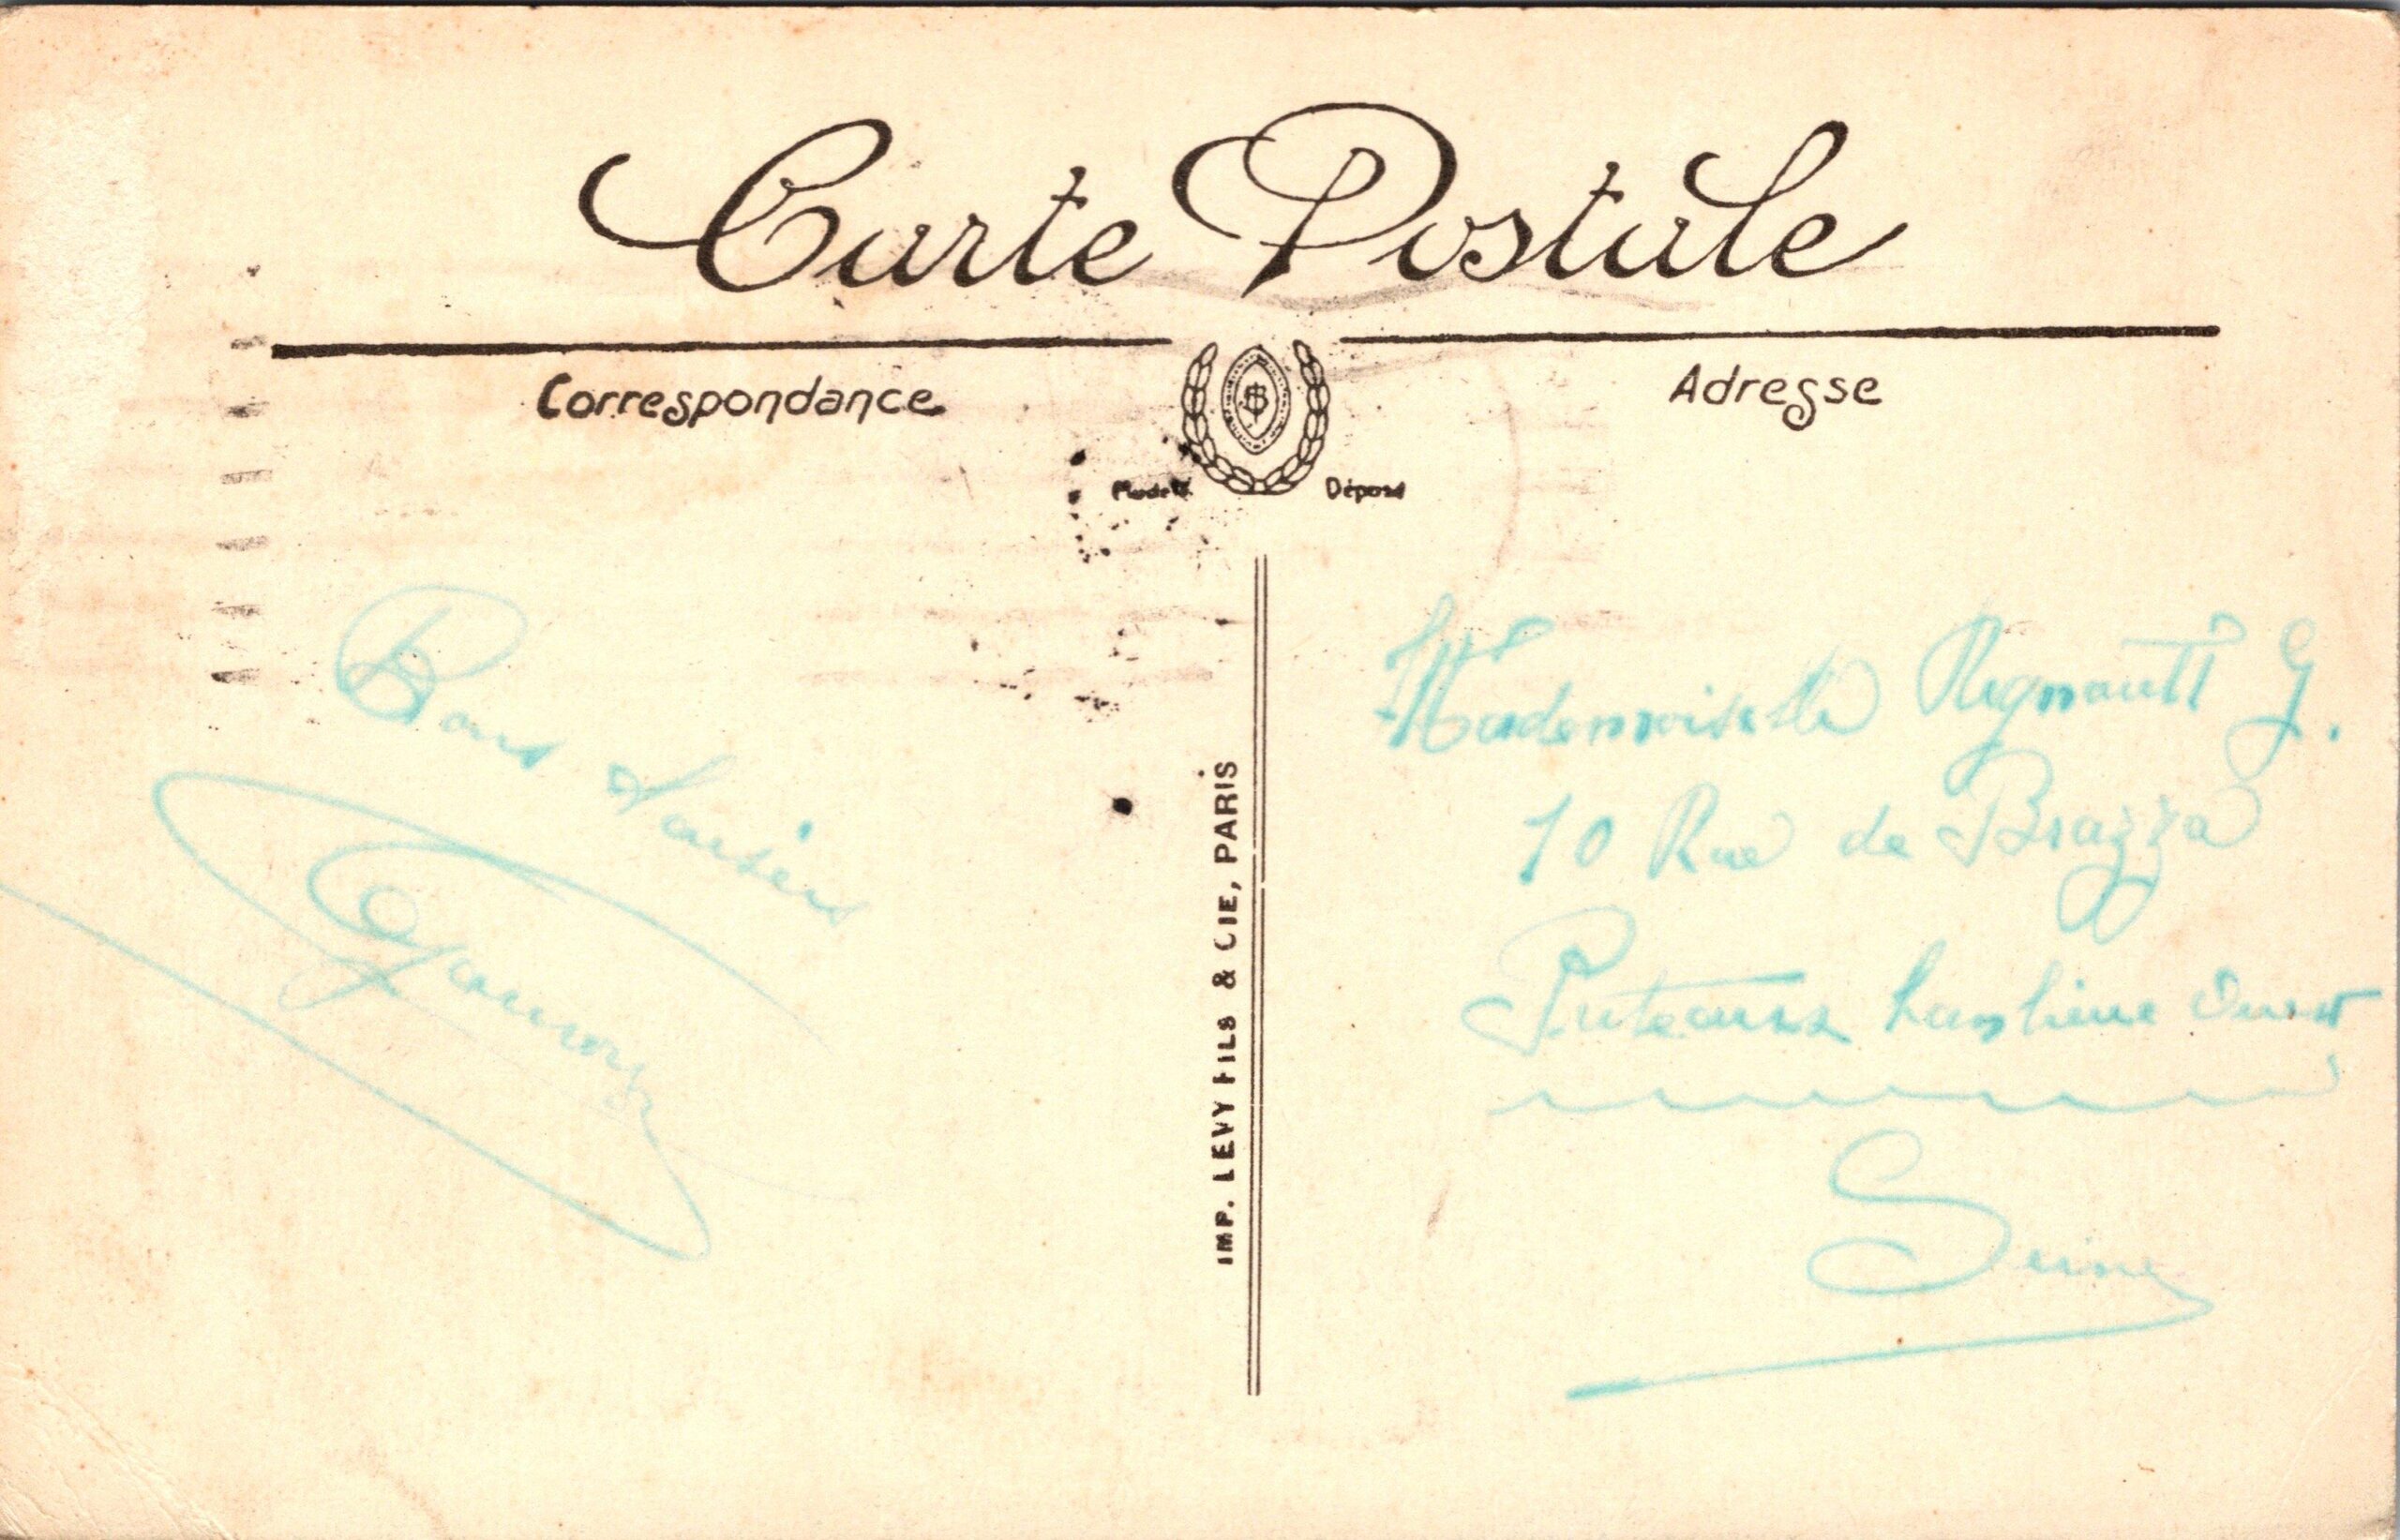 Carte Postale
Correspondance
Adresse
Modèle Déposé
Bons baisers
Mademoiselle Regnault G.
10 Rue de Brazza
Puteaux banlieue Ouest
Seine
IMP. LEVY FILS & CIE, PARIS